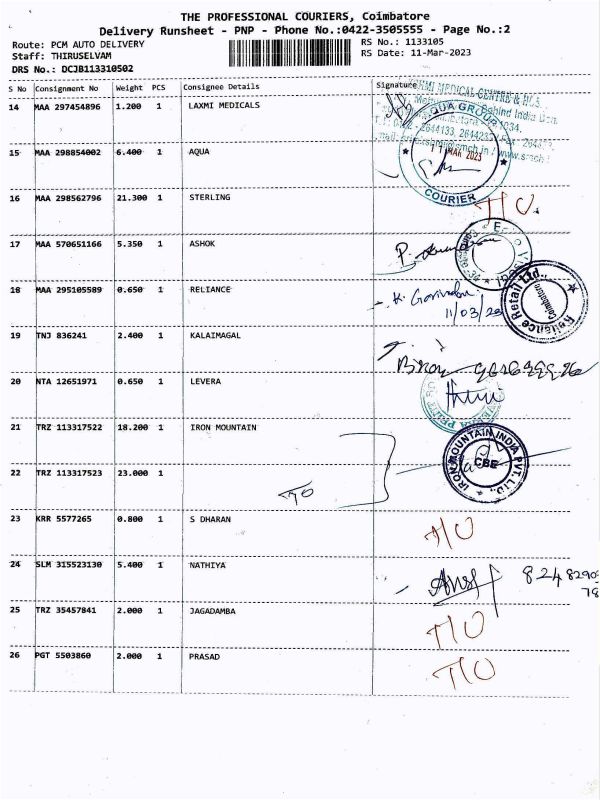 THE PROFESSIONAL COURIERS, Coimbatore
Delivery Runsheet - PNP - Phone No.:0422-3505555 - Page No.:2
Route: PCM AUTO DELIVERY
RS No.: 1133105
Staff: THIRUSELVAM
RS Date: 11-Mar-2023
DRS No.: DCJB113310502
S No Consignment No Weight PCS Consignee Details Signature
14 MAA 297454896 1.200 1 LAXMI MEDICALS
MEDICAL CENTRE &
Behind India
2644133,
AQUA GROUP
11 MAR 2023
COURIER
15 MAA 298854002 6.400 1 AQUA
16 MAA 298562796 21.300 1 STERLING T/O.
17 MAA 570651166 5.350 1 ASHOK
18 MAA 295105589 0.650 1 RELIANCE
11/03/23
Reliance Retail Ltd.,
Coimbatore
19 TNJ 836241 2.400 1 KALAIMAGAL
20 NTA 12651971 0.650 1 LEVERA
21 TRZ 113317522 18.200 1 IRON MOUNTAIN
IRON MOUNTAIN INDIA PVT. LTD.,
CBE
22 TRZ 113317523 23.000 1
TO
23 KRR 5577265 0.800 1 S DHARAN T/O
24 SLM 315523130 5.400 1 NATHIYA
25 TRZ 35457841 2.000 1 JAGADAMBA T/O
26 PGT 5503860 2.000 1 PRASAD T/O